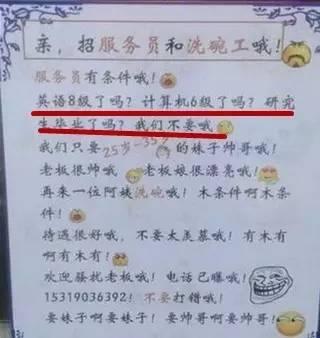 亲，招服务员和洗碗工哦！
服务员有条件哦！
英语8级了吗？计算机6级了吗？研究
生毕业了吗？我们不要哦
我们只要25岁-35岁的妹子帅哥哦！
老板很帅哦 老板娘很漂亮哦！
再来一位阿姨洗碗哦！木条件啊木条
件！
待遇很好哦，不要太羡慕哦！有木有
啊有木有！
欢迎骚扰老板哦！电话已曝哦！
15319036392！不要打错哦！
要妹子啊要妹子！要帅哥啊要帅哥！